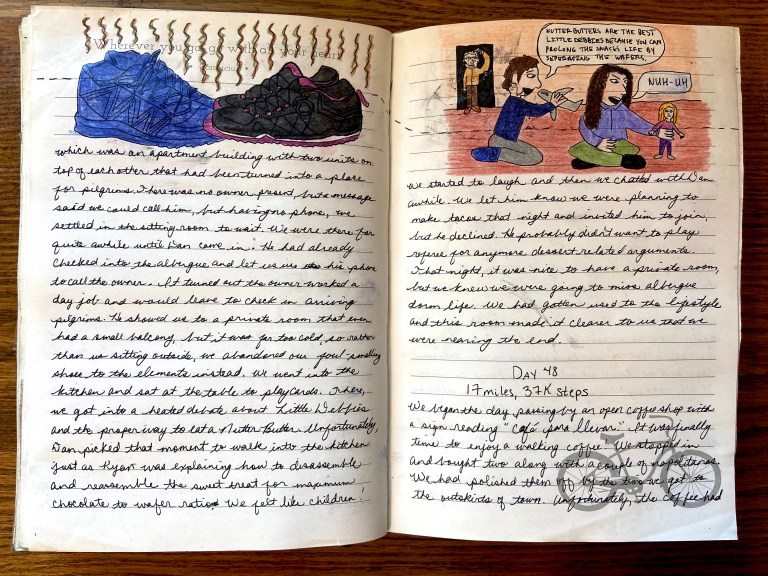 Wherever you go, go with all your heart.
Confucius
which was an apartment building with two units on
top of each other that had been turned into a place
for pilgrims. There was no owner present, but a message
said we could call him, but having no phone, we
settled in the sitting room to wait. We were there for
quite awhile until Dan came in. He had already
checked into the albergue and let us use his phone
to call the owner. It turned out the owner worked a
day job and would leave to check in arriving
pilgrims. He showed us to a private room that even
had a small balcony, but it was far too cold, so rather
than us sitting outside, we abandoned our foul-smelling
shoes to the elements instead. We went into the
kitchen and sat at the table to play cards. There,
we got into a heated debate about Little Debbies
and the proper way to eat a Nutter Butter. Unfortunately,
Dan picked that moment to walk into the kitchen
just as Ryan was explaining how to disassemble
and reassemble the sweet treat for maximum
chocolate to wafer ratio. We felt like children.
NUTTER BUTTERS ARE THE BEST
LITTLE DEBBIES BECAUSE YOU CAN
PROLONG THE SNACK'S LIFE BY
SEPERATING THE WAFERS.
NUH-UH
We started to laugh and then we chatted with Dan
awhile. We let him know we were planning to
make tacos that night and invited him to join,
but he declined. He probably didn't want to play
referee for anymore dessert related arguments.
That night, it was nice to have a private room,
but we knew we were going to miss albergue
dorm life. We had gotten used to the lifestyle
and this room made it clearer to us that we
were nearing the end.
DAY 48
17 miles, 37K steps
We began the day passing by an open coffee shop with
a sign reading "café para llevar". It was finally
time to enjoy a walking coffee. We stopped in
and bought two along with a couple of napolitanas.
We had polished them off by the time we got to
the outskirts of town. Unfortunately, the coffee had